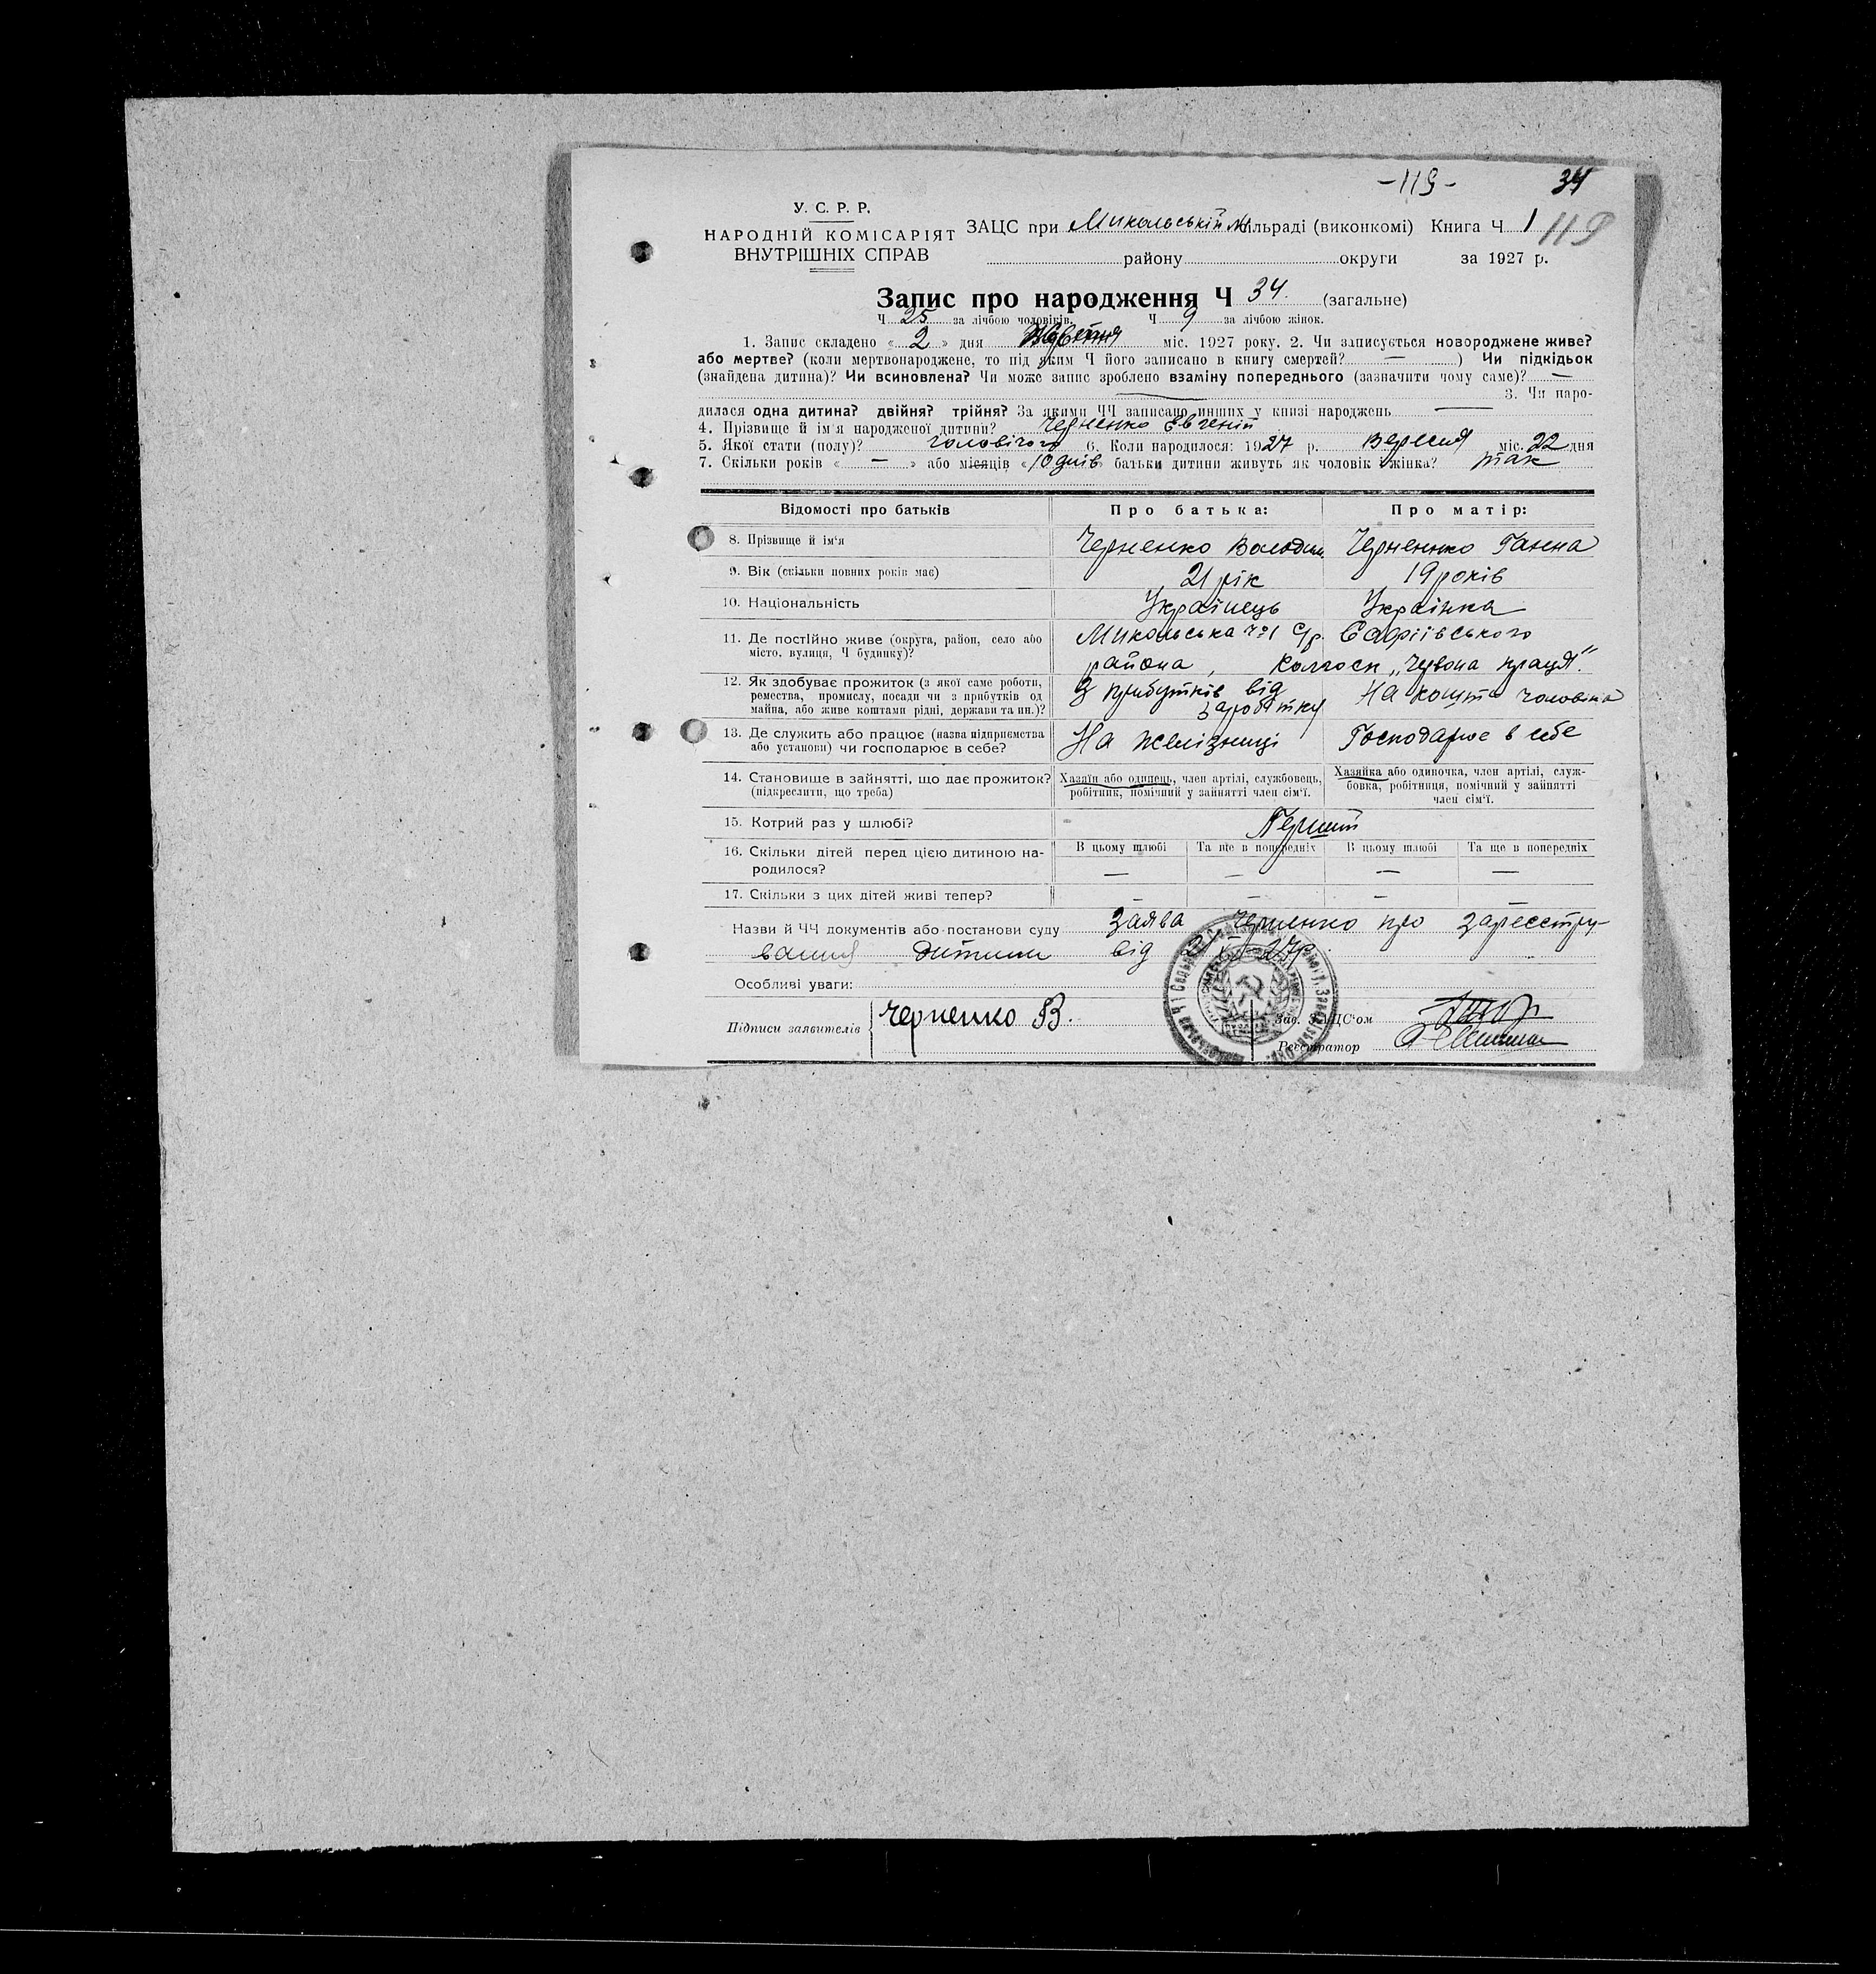 -119- 34
У. С. Р. Р.
НАРОДНІЙ КОМІСАРІЯТ
ВНУТРІШНІХ СПРАВ
ЗАЦС при Микольській сільраді (виконкомі) Книга Ч 1 119
району округи за 1927 р.
Запис про народження Ч 34. (загальне)
Ч 25 за лічбою чоловіків. Ч 9 за лічбою жінок.
1. Запис складено « 2 » дня Жовтня міс. 1927 року. 2. Чи записується новороджене живе?
або мертве? (коли мертвонароджене, то під яким Ч його записано в книгу смертей? — ) Чи підкідьок
(знайдена дитина)? Чи всиновлена? Чи може запис зроблено взаміну попереднього (зазначити чому саме)? —
3. Чи наро-
дилася одна дитина? двійня? трійня? За якими ЧЧ записано инших у книзі народжень —
4. Прізвище й ім'я народженої дитини? Черненко Євгеній
5. Якої стати (полу)? чоловічого 6. Коли народилося: 1927 р. Вересня міс. 22 дня
7. Скільки років « — » або місяців «10 днів» батьки дитини живуть як чоловік і жінка? так
Відомості про батьків Про батька: Про матір:
8. Прізвище й ім'я Черненко Володим Черненко Ганна
9. Вік (скільки повних років має) 21 рік 19 років
10. Національність Українець Українка
11. Де постійно живе (округа, район, село або Микольська №1 с/р. Софіівського
місто, вулиця, Ч будинку)? района, Колгосп „Червона праця".
12. Як здобуває прожиток (з якої саме роботи, З прибутків від На кошта чоловіка
ремества, промислу, посади чи з прибутків од заробітку
майна, або живе коштами рідні, держави та ин.)?
13. Де служить або працює (назва підприємства На желізниці Господарює в себе
або установи) чи господарює в себе?
14. Становище в зайнятті, що дає прожиток? Хазяїн або одинець, член артілі, службовець, Хазяйка або одиночка, член артілі, служ-
(підкреслити, що треба) робітник, помічний у зайнятті член сім'ї. бовка, робітниця, помічний у зайнятті
член сім'ї.
15. Котрий раз у шлюбі? Перший
16. Скільки дітей перед цією дитиною на- В цьому шлюбі Та ще в попередніх В цьому шлюбі Та ще в попередніх
родилося? — — — —
17. Скільки з цих дітей живі тепер? — — — —
Назви й ЧЧ документів або постанови суду Заява Черненко про зареєстру-
вання дитини від 27р.
Особливі уваги:
Підписи заявителів Черненко В. Зав. ЗАЦС'ом
Реєстратор